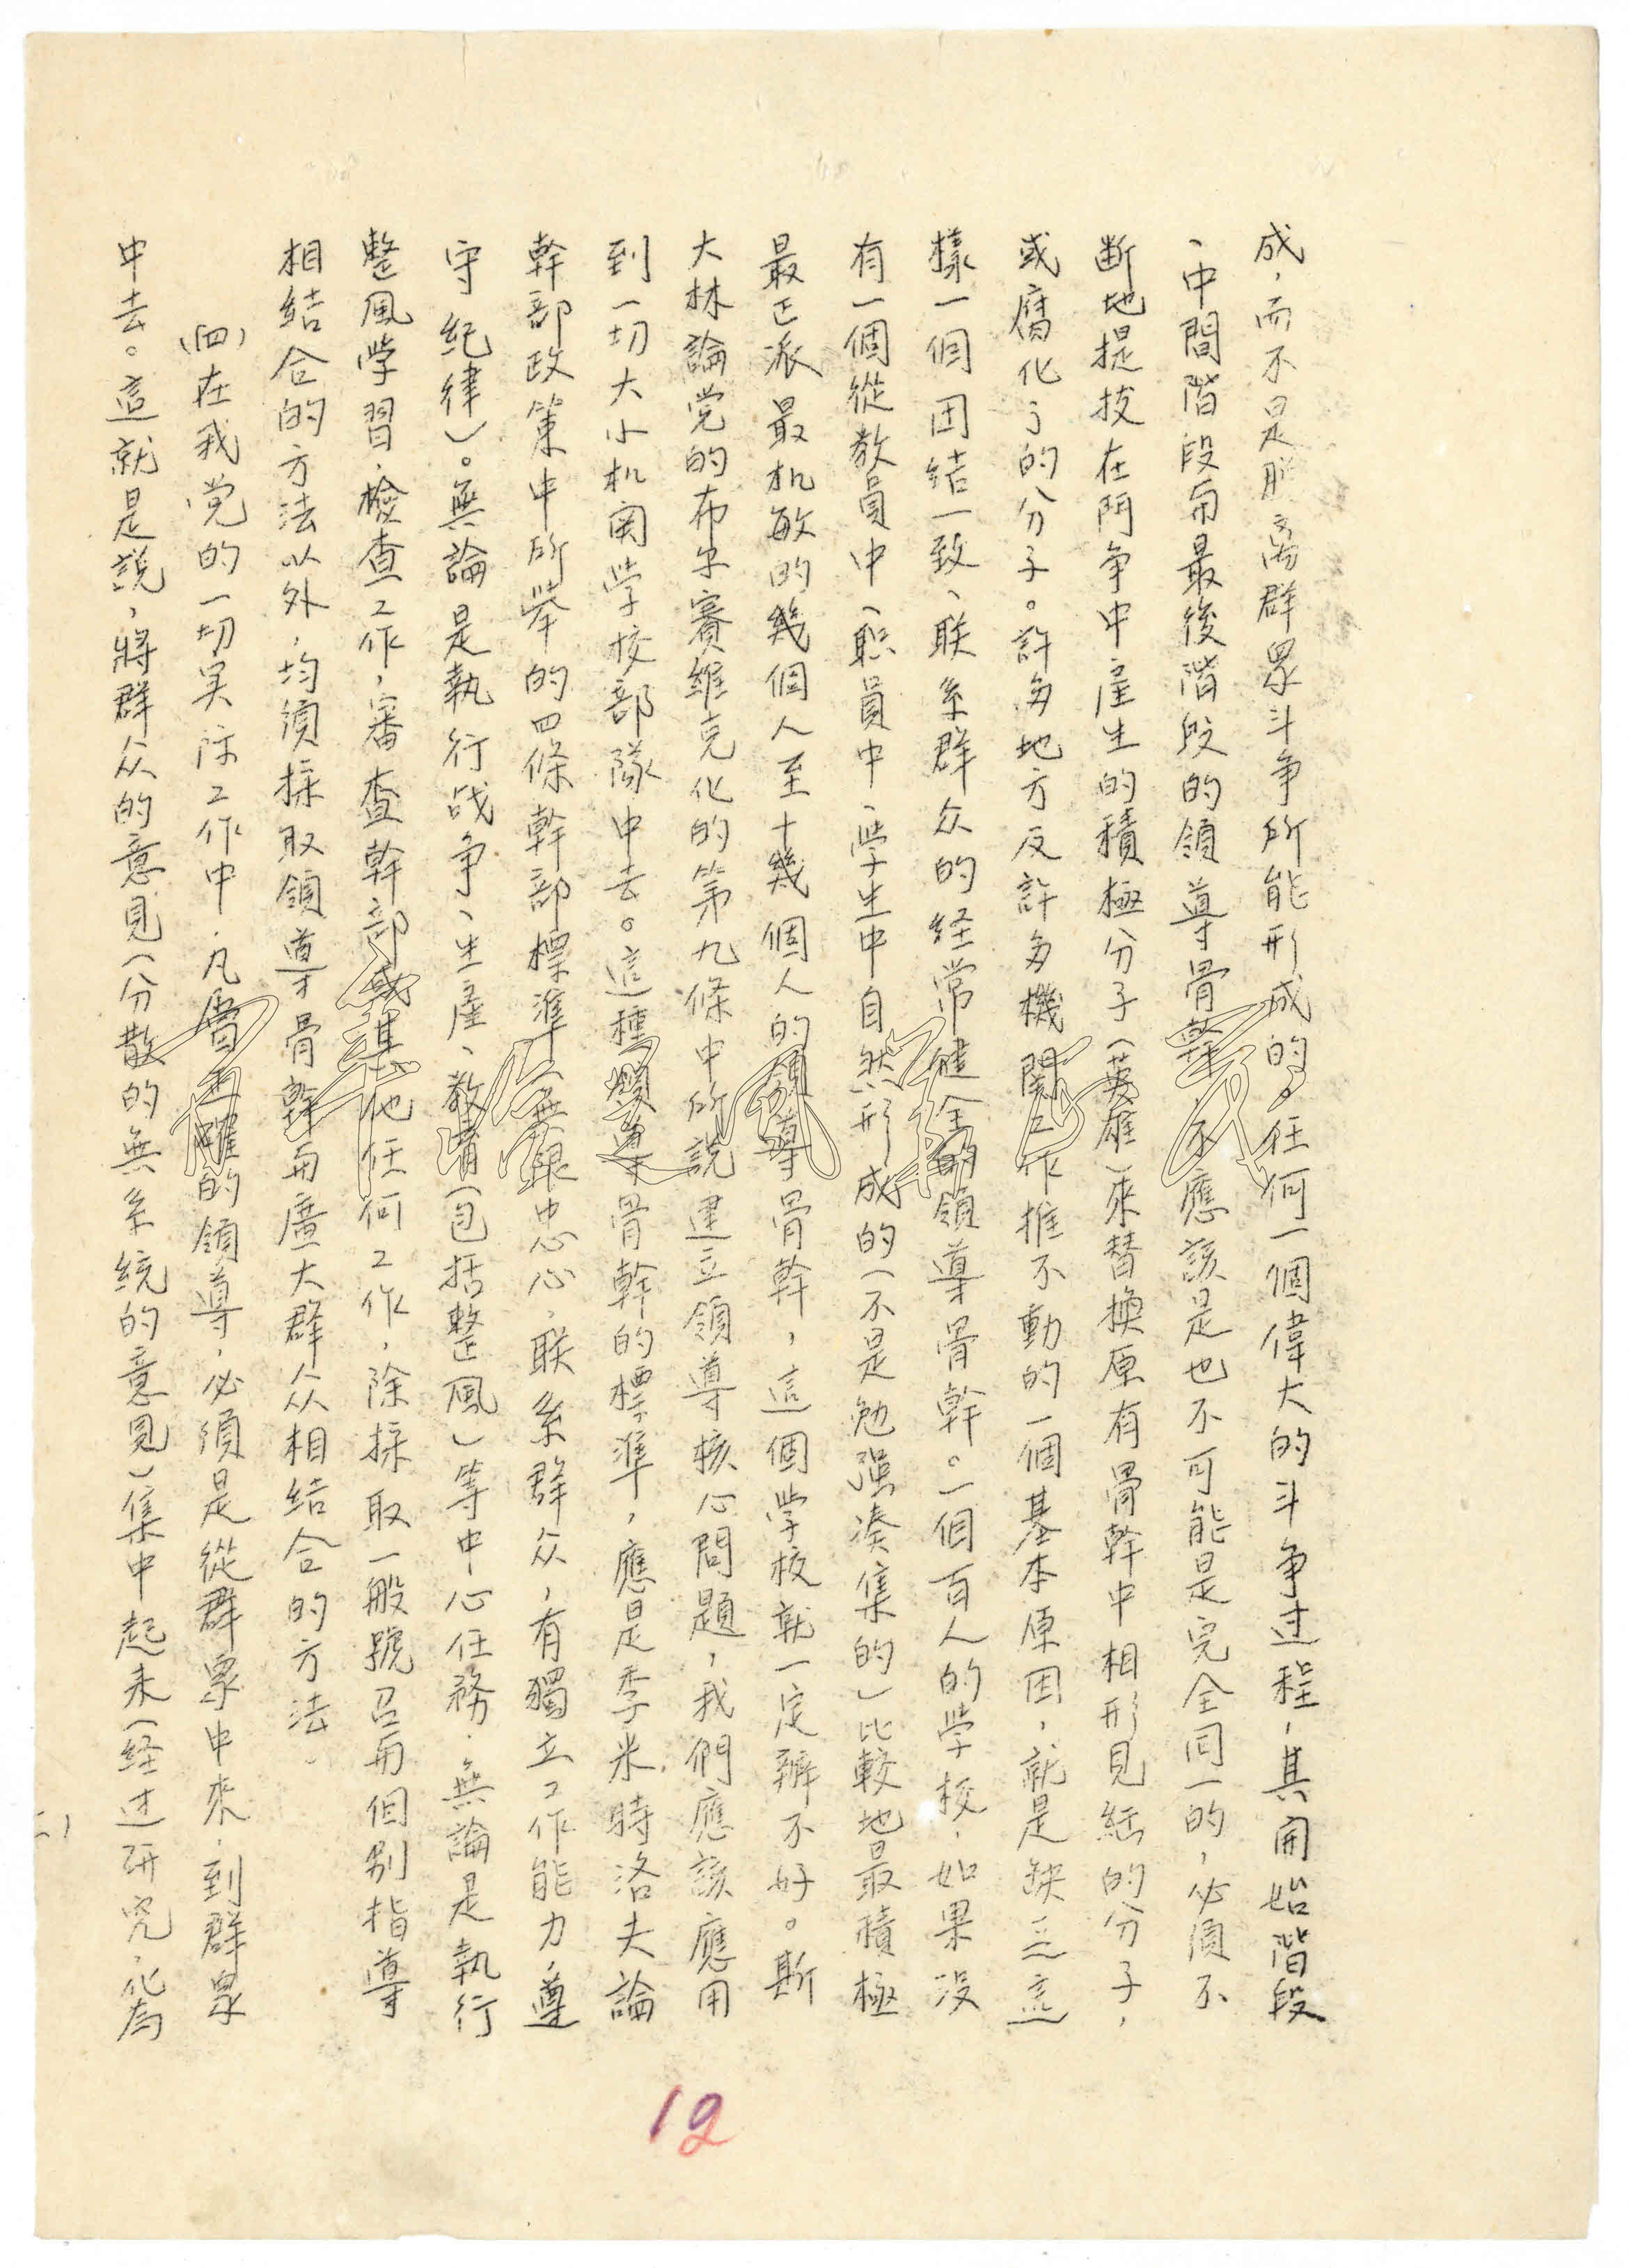 成，而不是脱离群眾斗争所能形成的。任何一個偉大的斗争过程，其開始階段
、中間階段与最後階段的領導骨幹，不應該是也不可能是完全同一的，必須不
断地提拔在鬥争中產生的積極分子（英雄）來替換原有骨幹中相形見絀的分子，
或腐化了的分子。許多地方反許多機關工作推不動的一個基本原因，就是缺乏這
樣一個团結一致、联系群众的经常健全的領導骨幹。一個百人的学校，如果没
有一個從教員中、职員中、学生中自然形成的（不是勉强凑集的）比較地最積極
最正派最机敏的幾個人至十幾個人的領導骨幹，這個学校就一定辦不好。斯
大林論党的布尔塞維克化的第九條中所說建立領導核心問題，我們應該應用
到一切大小机関学校部隊中去。這種領導骨幹的標準，應是季米特洛夫論
幹部政策中所举的四條幹部標準（無限忠心，联系群众，有獨立工作能力，遵
守紀律）。無論是執行战争、生產、教育（包括整風）等中心任務，無論是執行
整風学習，檢查工作，審查幹部或其他任何工作，除採取一般號召与個别指導
相結合的方法以外，均須採取領導骨幹与廣大群众相結合的方法。
（四）在我党的一切实际工作中，凡属正確的領導，必須是從群眾中來，到群眾
中去。這就是說，將群众的意見（分散的無系統的意見）集中起来（经过研究，化為
12